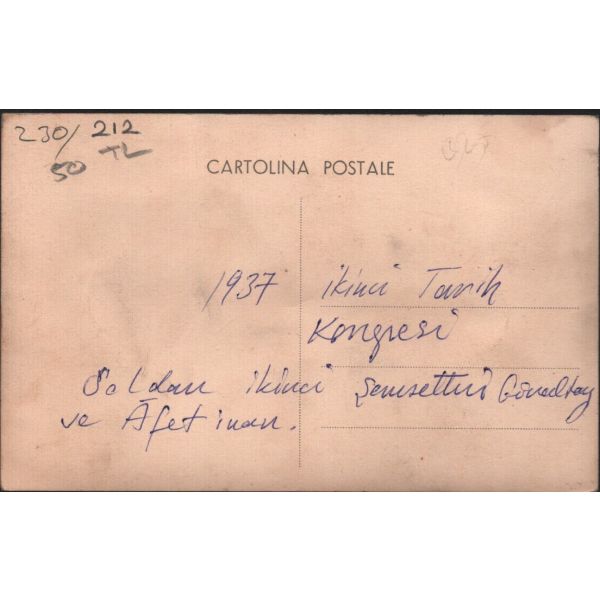 230/ 212
50 TL
CARTOLINA POSTALE
1937 ikinci Tarih
Kongresi
Soldan ikinci Şemsettin Günaltay
ve Âfet inan.